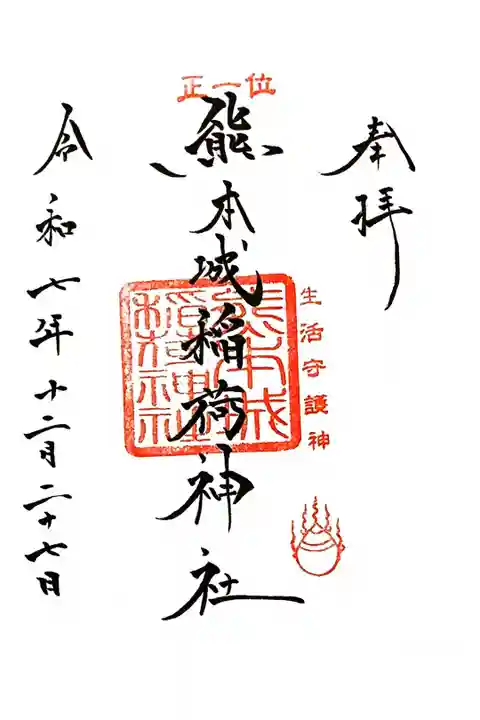 奉拝
生活守護神
正一位
熊本城稲荷神社
熊本城
稲荷神社
令和七年十二月二十七日